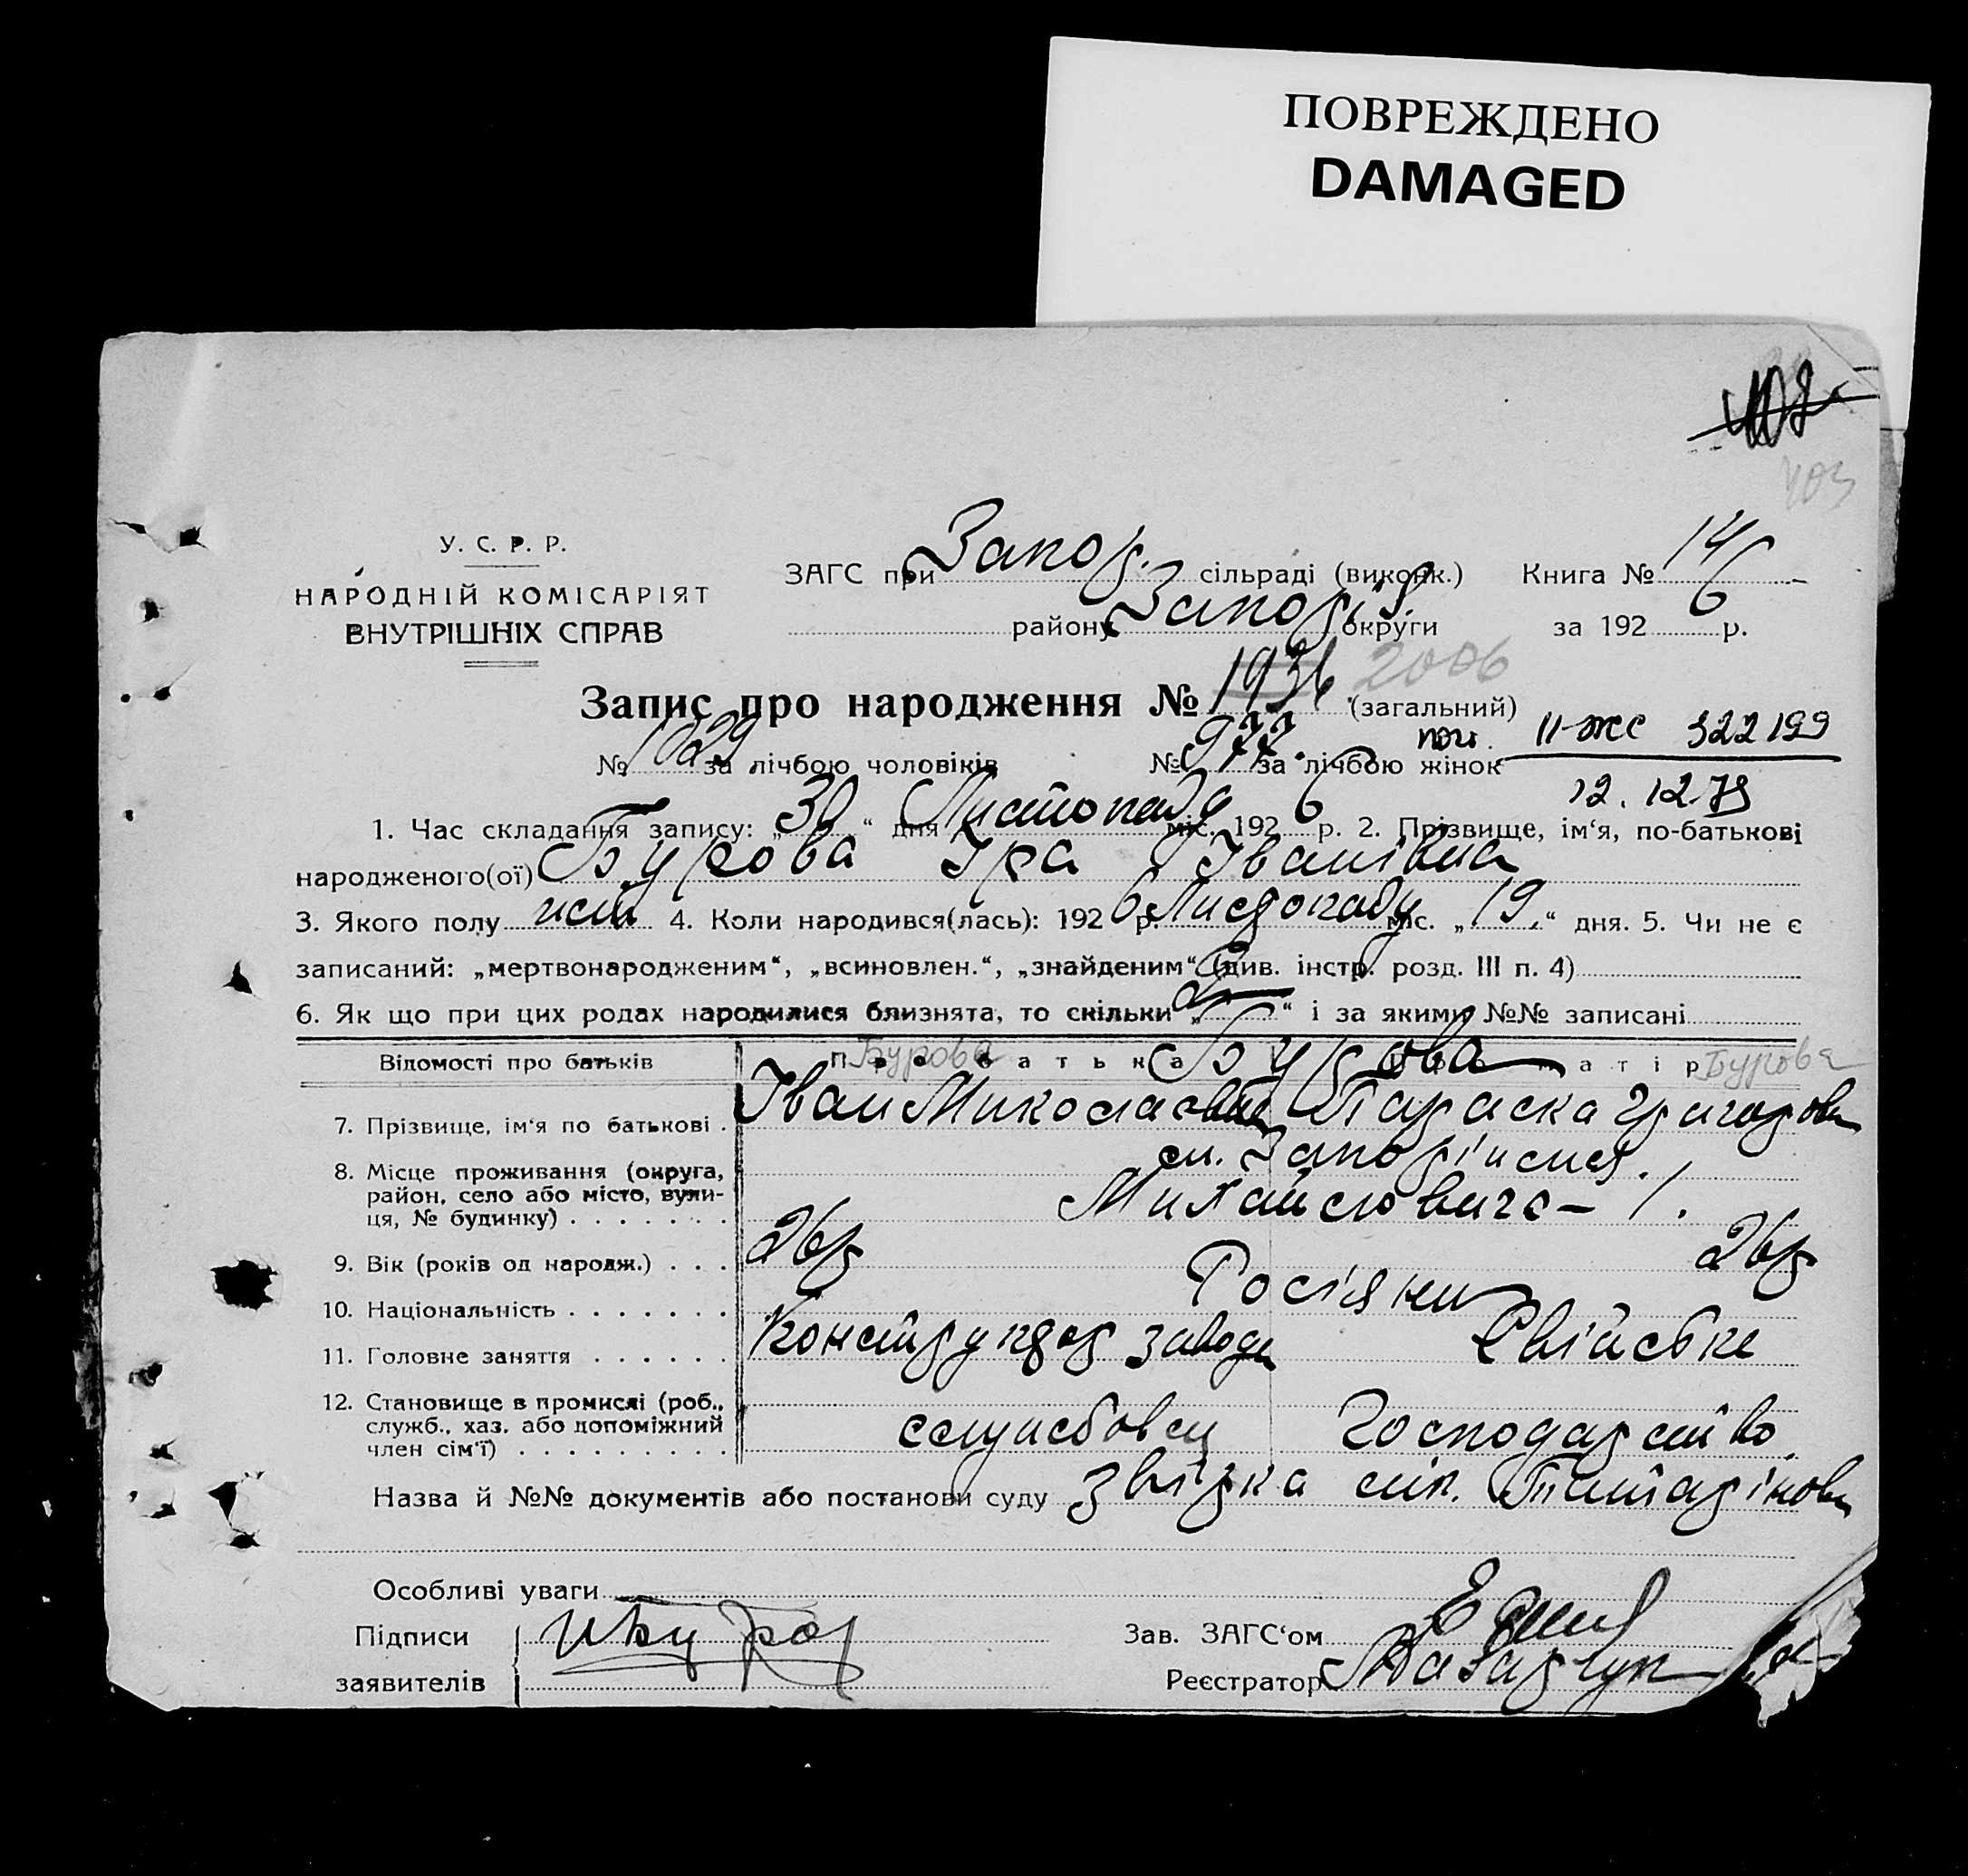 ПОВРЕЖДЕНО
DAMAGED
403
У. С. Р. Р.
НАРОДНІЙ КОМІСАРІЯТ
ВНУТРІШНІХ СПРАВ
ЗАГС при Запор. сільраді (виконк.) Книга № 14
району Запоріз. округи за 1926 р.
Запис про народження № 1936 2006 (загальний)
№ 1029 за лічбою чоловіків № 977 за лічбою жінок
пов. II-жс 322199
12.12.79
1. Час складання запису: „30“ дня Листопада міс. 1926 р. 2. Прізвище, ім‘я, по-батькові
народженого(ої) Бурова Іра Іванівна
3. Якого полу жіп. 4. Коли народився(лась): 1926 р. Листопаду міс. „19“ дня. 5. Чи не є
записаний: „мертвонародженим“, „всиновлен.“, „знайденим“ (див. інстр. розд. III п. 4)
6. Як що при цих родах народилися близнята, то скільки „2“ і за якими №№ записані
Відомості про батьків Про батька Бурова Бурова Про матір Бурова
7. Прізвище, ім‘я по батькові . Іван Миколаєвич Параска Григоровн
8. Місце проживання (округа,
район, село або місто, вули-
ця, № будинку) . . . . . . .
ст. Запоріжжя.
Михайловича – 1.
9. Вік (років од народж.) . . . 26р 26р
10. Національність . . . . . . . Росіяни
11. Головне заняття . . . . . . Конструктор завода Свійське
12. Становище в промислі (роб.,
служб., хаз. або допоміжний
член сім‘ї) . . . . . . . . .
службовец Господарство
Назва й №№ документів або постанови суду Звірка лік. Татарінови
Особливі уваги
Підписи
заявителів
Зав. ЗАГС‘ом
Реєстратор